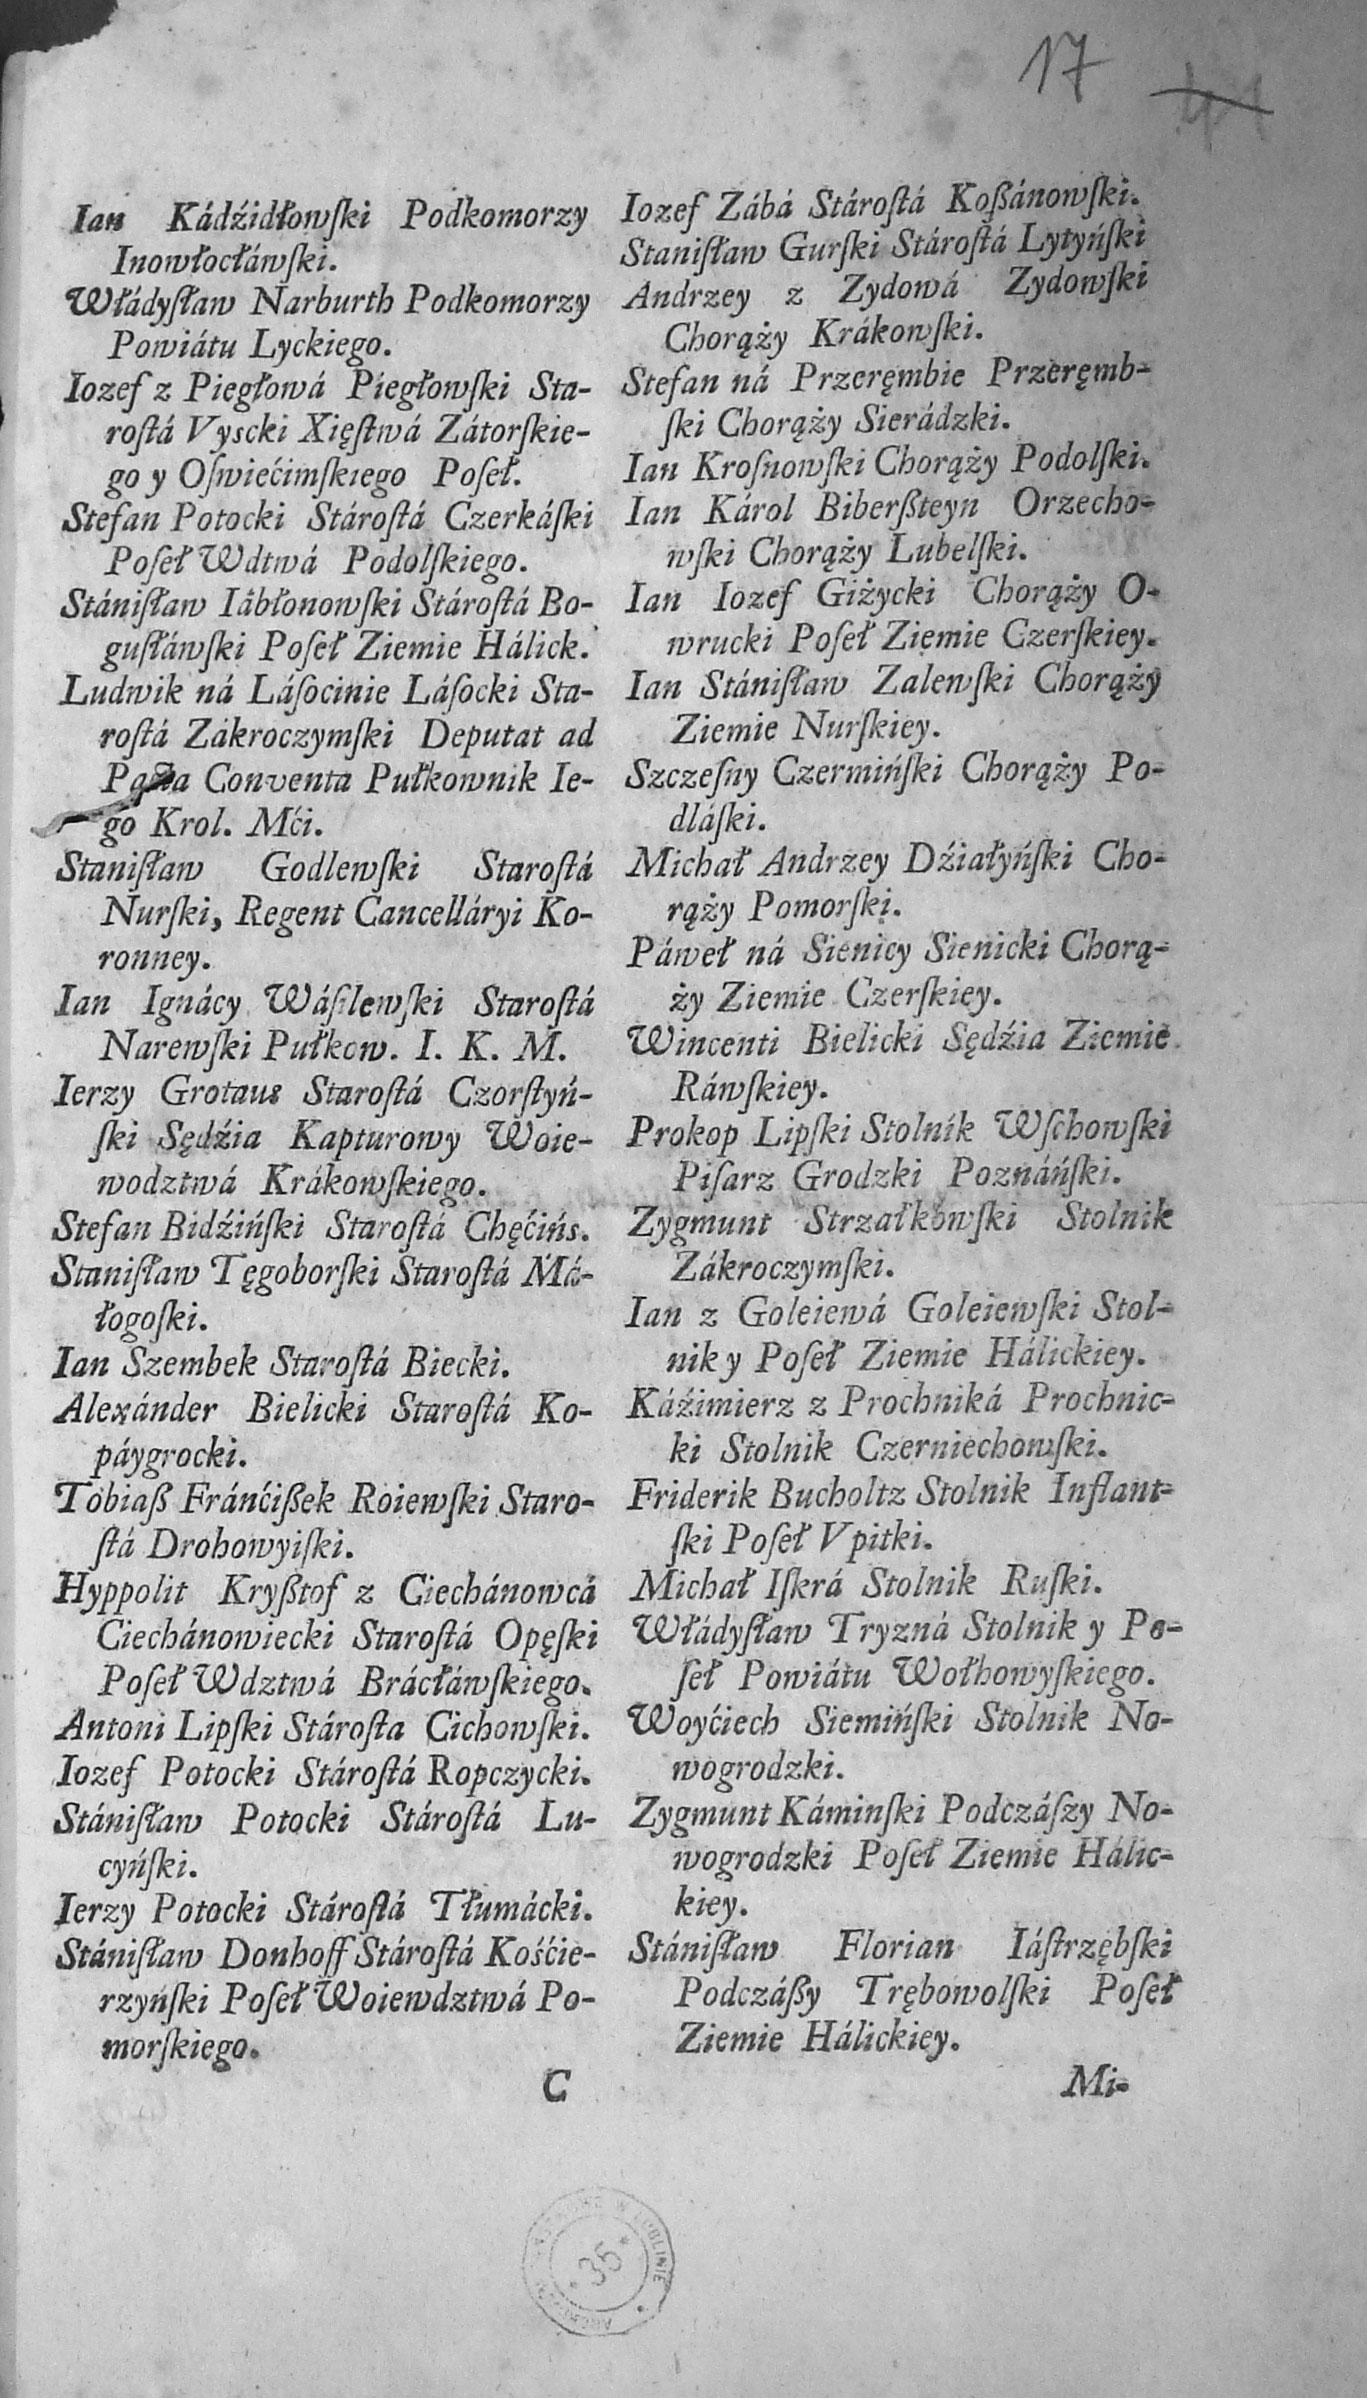 17
Ian Kádźidłowſki Podkomorzy
Inowłocłáwſki.
Włádyſław Narburth Podkomorzy
Powiátu Lyckiego.
Iozef z Piegłowá Piegłowſki Sta-
roſtá Vyscki Xięſtwá Zátorſkie-
go y Oſwiećimſkiego Poſeł.
Stefan Potocki Stároſtá Czerkáſki
Poſeł Wdtwá Podolſkiego.
Stániſław Iábłonowſki Stároſtá Bo-
guſłáwſki Poſeł Ziemie Hálick.
Ludwik ná Láſocinie Láſocki Sta-
roſtá Zákroczymſki Deputat ad
Conventa Pułkownik Ie-
go Krol. Mći.
Staniſław Godlewſki Staroſtá
Nurſki, Regent Cancelláryi Ko-
ronney.
Ian Ignácy Wáſilewſki Staroſtá
Narewſki Pułkow. I. K. M.
Ierzy Grotaus Staroſtá Czorſtyń-
ſki Sędźia Kapturowy Woie-
wodztwá Krákowſkiego.
Stefan Bidźińſki Staroſtá Chęćińs.
Staniſław Tęgoborſki Staroſtá Má-
łogoſki.
Ian Szembek Staroſtá Biecki.
Alexánder Bielicki Staroſtá Ko-
páygrocki.
Tobiaß Fránćißek Roiewſki Staro-
ſtá Drohowyiſki.
Hyppolit Kryßtof z Ciechánowcá
Ciechánowiecki Staroſtá Opęſki
Poſeł Wdztwá Brácłáwſkiego.
Antoni Lipſki Stároſta Cichowſki.
Iozef Potocki Stároſtá Ropczycki.
Stániſław Potocki Stároſtá Lu-
cyńſki.
Ierzy Potocki Stároſtá Tłumácki.
Stániſław Donhoff Stároſtá Kośćie-
rzyńſki Poſeł Woiewdztwá Po-
morſkiego.
C
Iozef Zábá Stároſtá Koßánowſki.
Staniſław Gurſki Stároſtá Lytyńſki
Andrzey z Zydowá Zydowſki
Chorąży Krákowſki.
Stefan ná Przeręmbie Przeręmb-
ſki Chorąży Sierádzki.
Ian Kroſnowſki Chorąży Podolſki.
Ian Károl Biberßteyn Orzecho-
wſki Chorąży Lubelſki.
Ian Iozef Giżycki Chorąży O-
wrucki Poſeł Ziemie Czerſkiey.
Ian Stániſław Zalewſki Chorąży
Ziemie Nurſkiey.
Szczeſny Czermińſki Chorąży Po-
dláſki.
Michał Andrzey Dźiałyńſki Cho-
rąży Pomorſki.
Páweł ná Sienicy Sienicki Chorą-
ży Ziemie Czerſkiey.
Wincenti Bielicki Sędźia Ziemie
Ráwſkiey.
Prokop Lipſki Stolnik Wſchowſki
Piſarz Grodzki Poznáńſki.
Zygmunt Strzałkowſki Stolnik
Zákroczymſki.
Ian z Goleiewá Goleiewſki Stol-
nik y Poſeł Ziemie Hálickiey.
Káźimierz z Prochniká Prochnic-
ki Stolnik Czerniechowſki.
Friderik Bucholtz Stolnik Inflant-
ſki Poſeł Vpitki.
Michał Iſkrá Stolnik Ruſki.
Włádyſław Tryzná Stolnik y Po-
ſeł Powiátu Wołhowyſkiego.
Woyćiech Siemińſki Stolnik No-
wogrodzki.
Zygmunt Káminſki Podczáſzy No-
wogrodzki Poſeł Ziemie Hálic-
kiey.
Stániſław Florian Iáſtrzębſki
Podczáßy Trębowolſki Poſeł
Ziemie Hálickiey.
Mi-
35